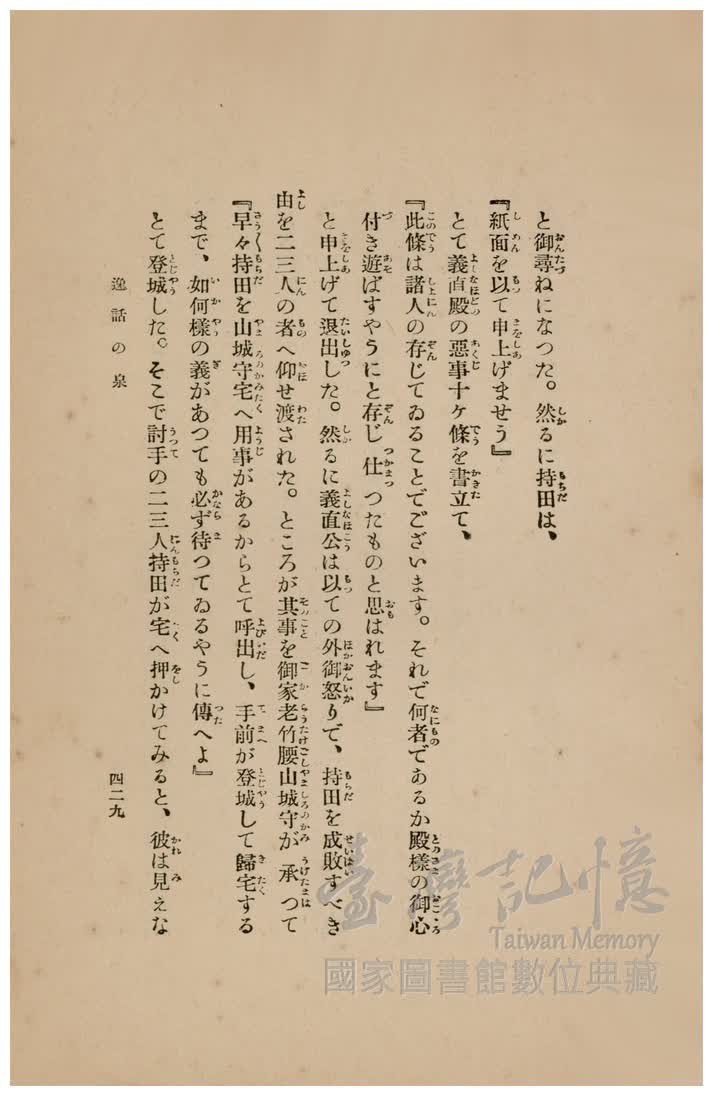 と御尋ねになつた。然るに持田は、
『紙面を以て申上げませう』
とて義直殿の惡事十ヶ條を書立て、
『此條は諸人の存じてゐることでございます。それで何者であるか殿樣の御心
付き遊ばすやうにと存じ仕つたものと思はれます』
と申上げて退出した。然るに義直公は以ての外御怒りで、持田を成敗すべき
由を二三人の者へ仰せ渡された。ところが其事を御家老竹腰山城守が承つて
『早々持田を山城守宅へ用事があるからとて呼出し、手前が登城して歸宅する
まで、如何樣の義があつても必ず待つてゐるやうに傳へよ』
とて登城した。そこで討手の二三人持田が宅へ押かけてみると、彼は見えな
逸話の泉
四二九
臺灣記憶
Taiwan Memory
國家圖書館數位典藏